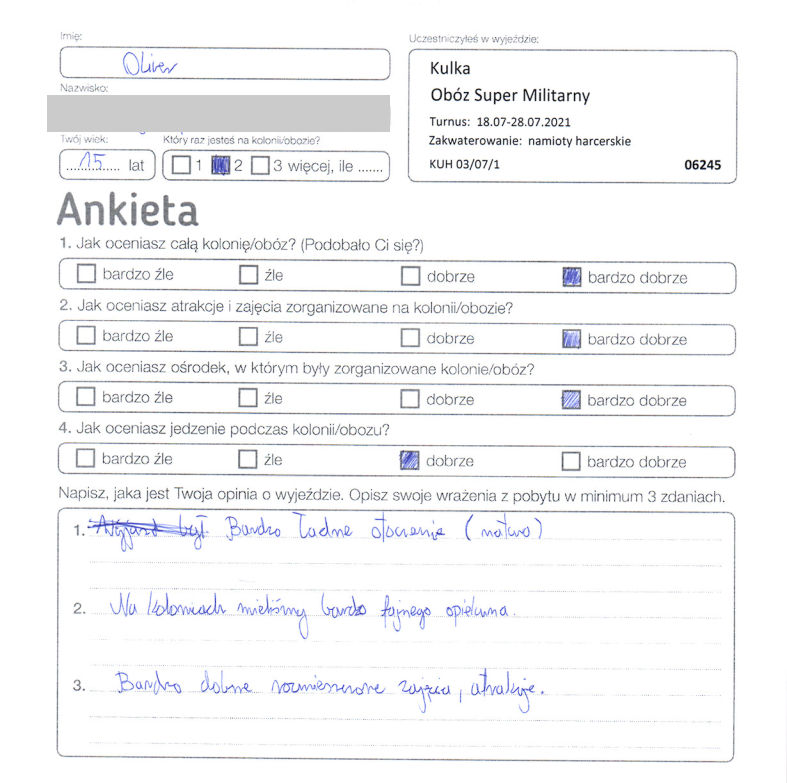 Imię:
Oliver
Nazwisko:
Twój wiek:
15 lat
Który raz jesteś na kolonii/obozie?
1 2 3 więcej, ile .......
Uczestniczyłeś w wyjeździe:
Kulka
Obóz Super Militarny
Turnus: 18.07-28.07.2021
Zakwaterowanie: namioty harcerskie
KUH 03/07/1 06245
Ankieta
1. Jak oceniasz całą kolonię/obóz? (Podobało Ci się?)
bardzo źle źle dobrze bardzo dobrze
2. Jak oceniasz atrakcje i zajęcia zorganizowane na kolonii/obozie?
bardzo źle źle dobrze bardzo dobrze
3. Jak oceniasz ośrodek, w którym były zorganizowane kolonie/obóz?
bardzo źle źle dobrze bardzo dobrze
4. Jak oceniasz jedzenie podczas kolonii/obozu?
bardzo źle źle dobrze bardzo dobrze
Napisz, jaka jest Twoja opinia o wyjeździe. Opisz swoje wrażenia z pobytu w minimum 3 zdaniach.
1. Wyjazd był Bardzo ładne otoczenie (natura)
2. Na koloniach mieliśmy bardzo fajnego opiekuna.
3. Bardzo dobrze rozmieszczone zajęcia, atrakcje.